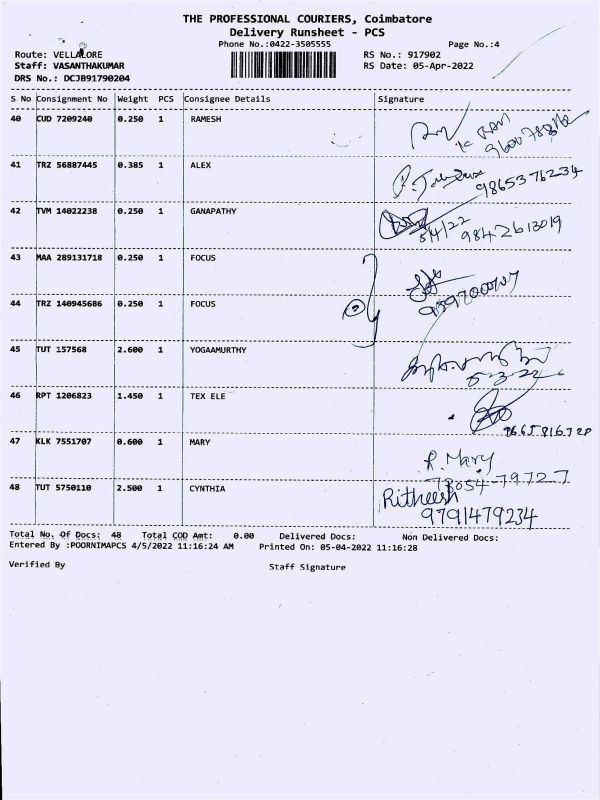 THE PROFESSIONAL COURIERS, Coimbatore
Delivery Runsheet - PCS
Phone No.:0422-3505555 Page No.:4
Route: VELLALORE RS No.: 917902
Staff: VASANTHAKUMAR RS Date: 05-Apr-2022
DRS No.: DCJB91790204
S No Consignment No Weight PCS Consignee Details Signature
40 CUD 7209240 0.250 1 RAMESH
41 TRZ 56887445 0.385 1 ALEX
9865376234
42 TVM 14022238 0.250 1 GANAPATHY
5/4/22 9842613019
43 MAA 289131718 0.250 1 FOCUS
44 TRZ 140945686 0.250 1 FOCUS
2
45 TUT 157568 2.600 1 YOGAAMURTHY
46 RPT 1206823 1.450 1 TEX ELE
47 KLK 7551707 0.600 1 MARY
R. Mary
78054-79727
48 TUT 5750110 2.500 1 CYNTHIA
Ritheesh
9791479234
Total No. Of Docs: 48 Total COD Amt: 0.00 Delivered Docs: Non Delivered Docs:
Entered By :POORNIMAPCS 4/5/2022 11:16:24 AM Printed On: 05-04-2022 11:16:28
Verified By Staff Signature